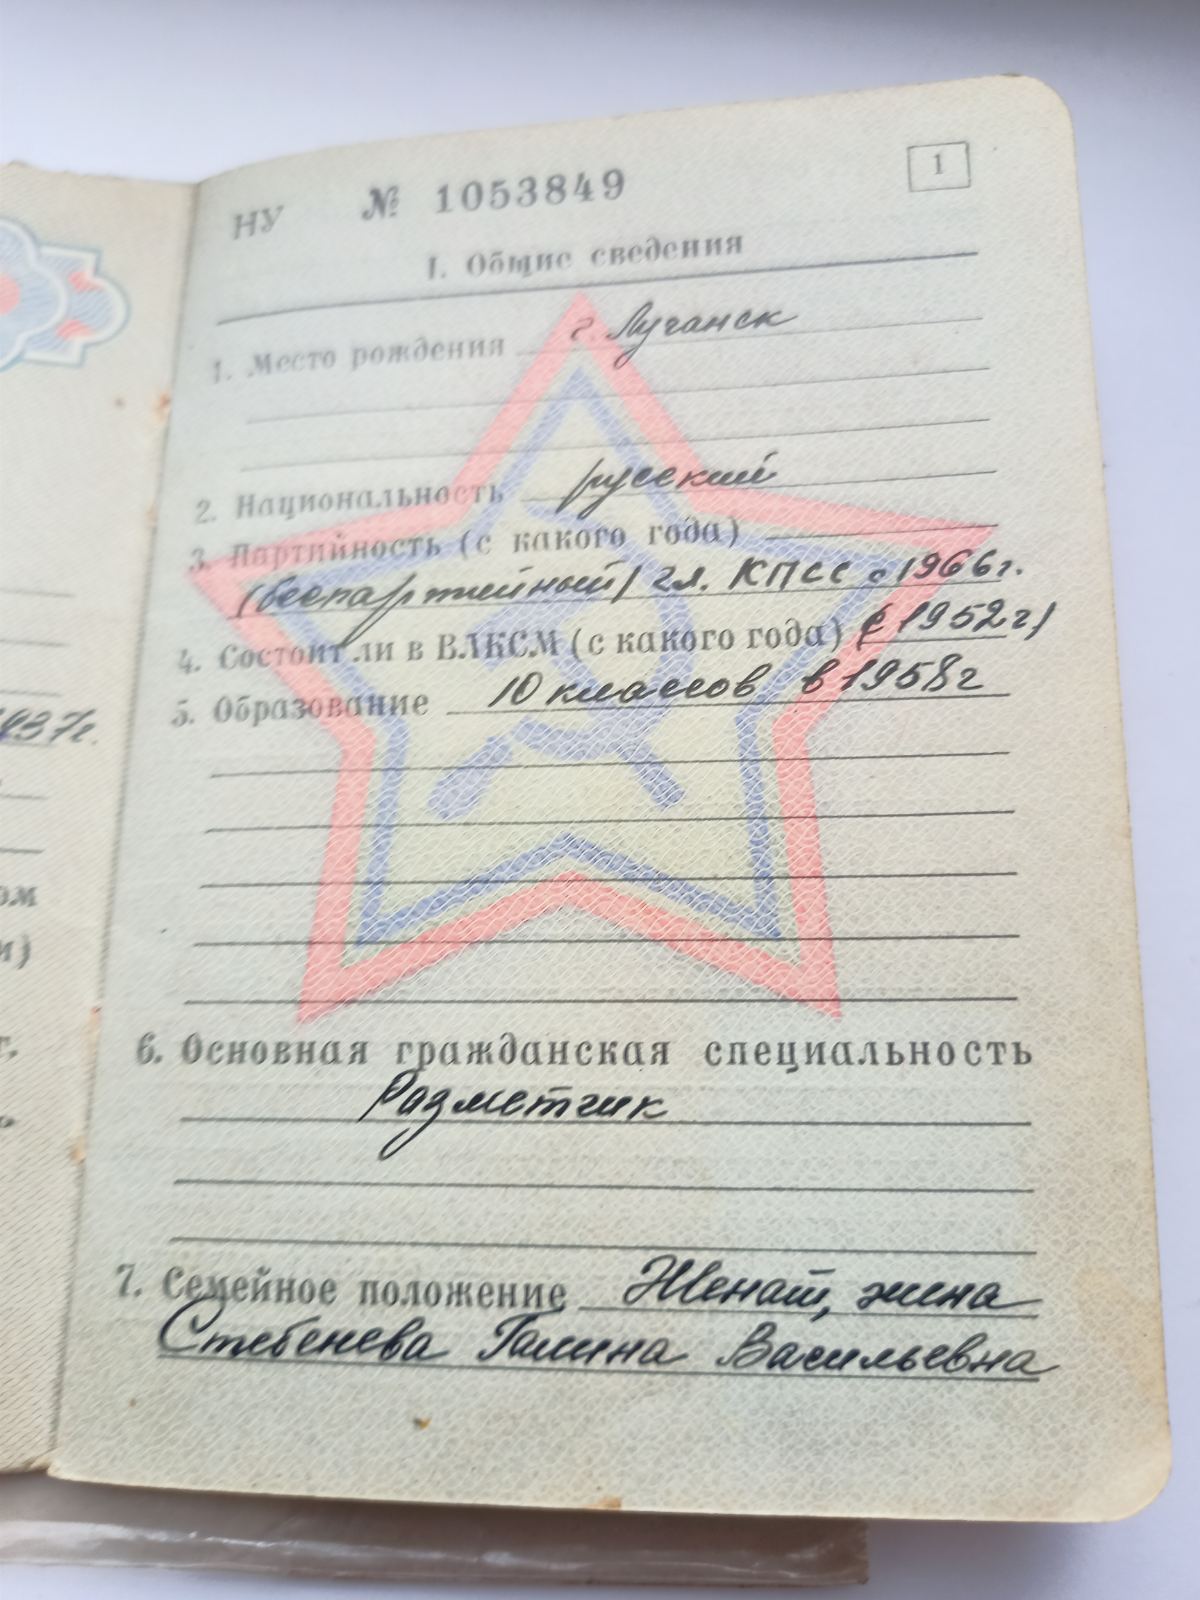 1
НУ № 1053849
I. Общие сведения
1. Место рождения г. Луганск
2. Национальность русский
3. Партийность (с какого года)
(беспартийный) чл. КПСС с 1966г.
4. Состоит ли в ВЛКСМ (с какого года) (с 1952г)
5. Образование 10 классов в 1958г
6. Основная гражданская специальность
Разметчик
7. Семейное положение Женат, жена
Стебенева Галина Васильевна
937г.
ом
и)
г.